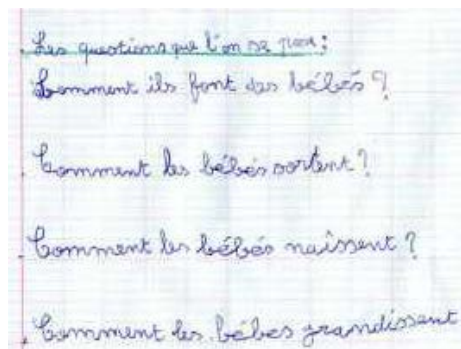 . Les questions que l'on se pose :
Comment ils font des bébés ?
. Comment les bébés sortent ?
. Comment les bébés naissent ?
. Comment les bébes grandissent